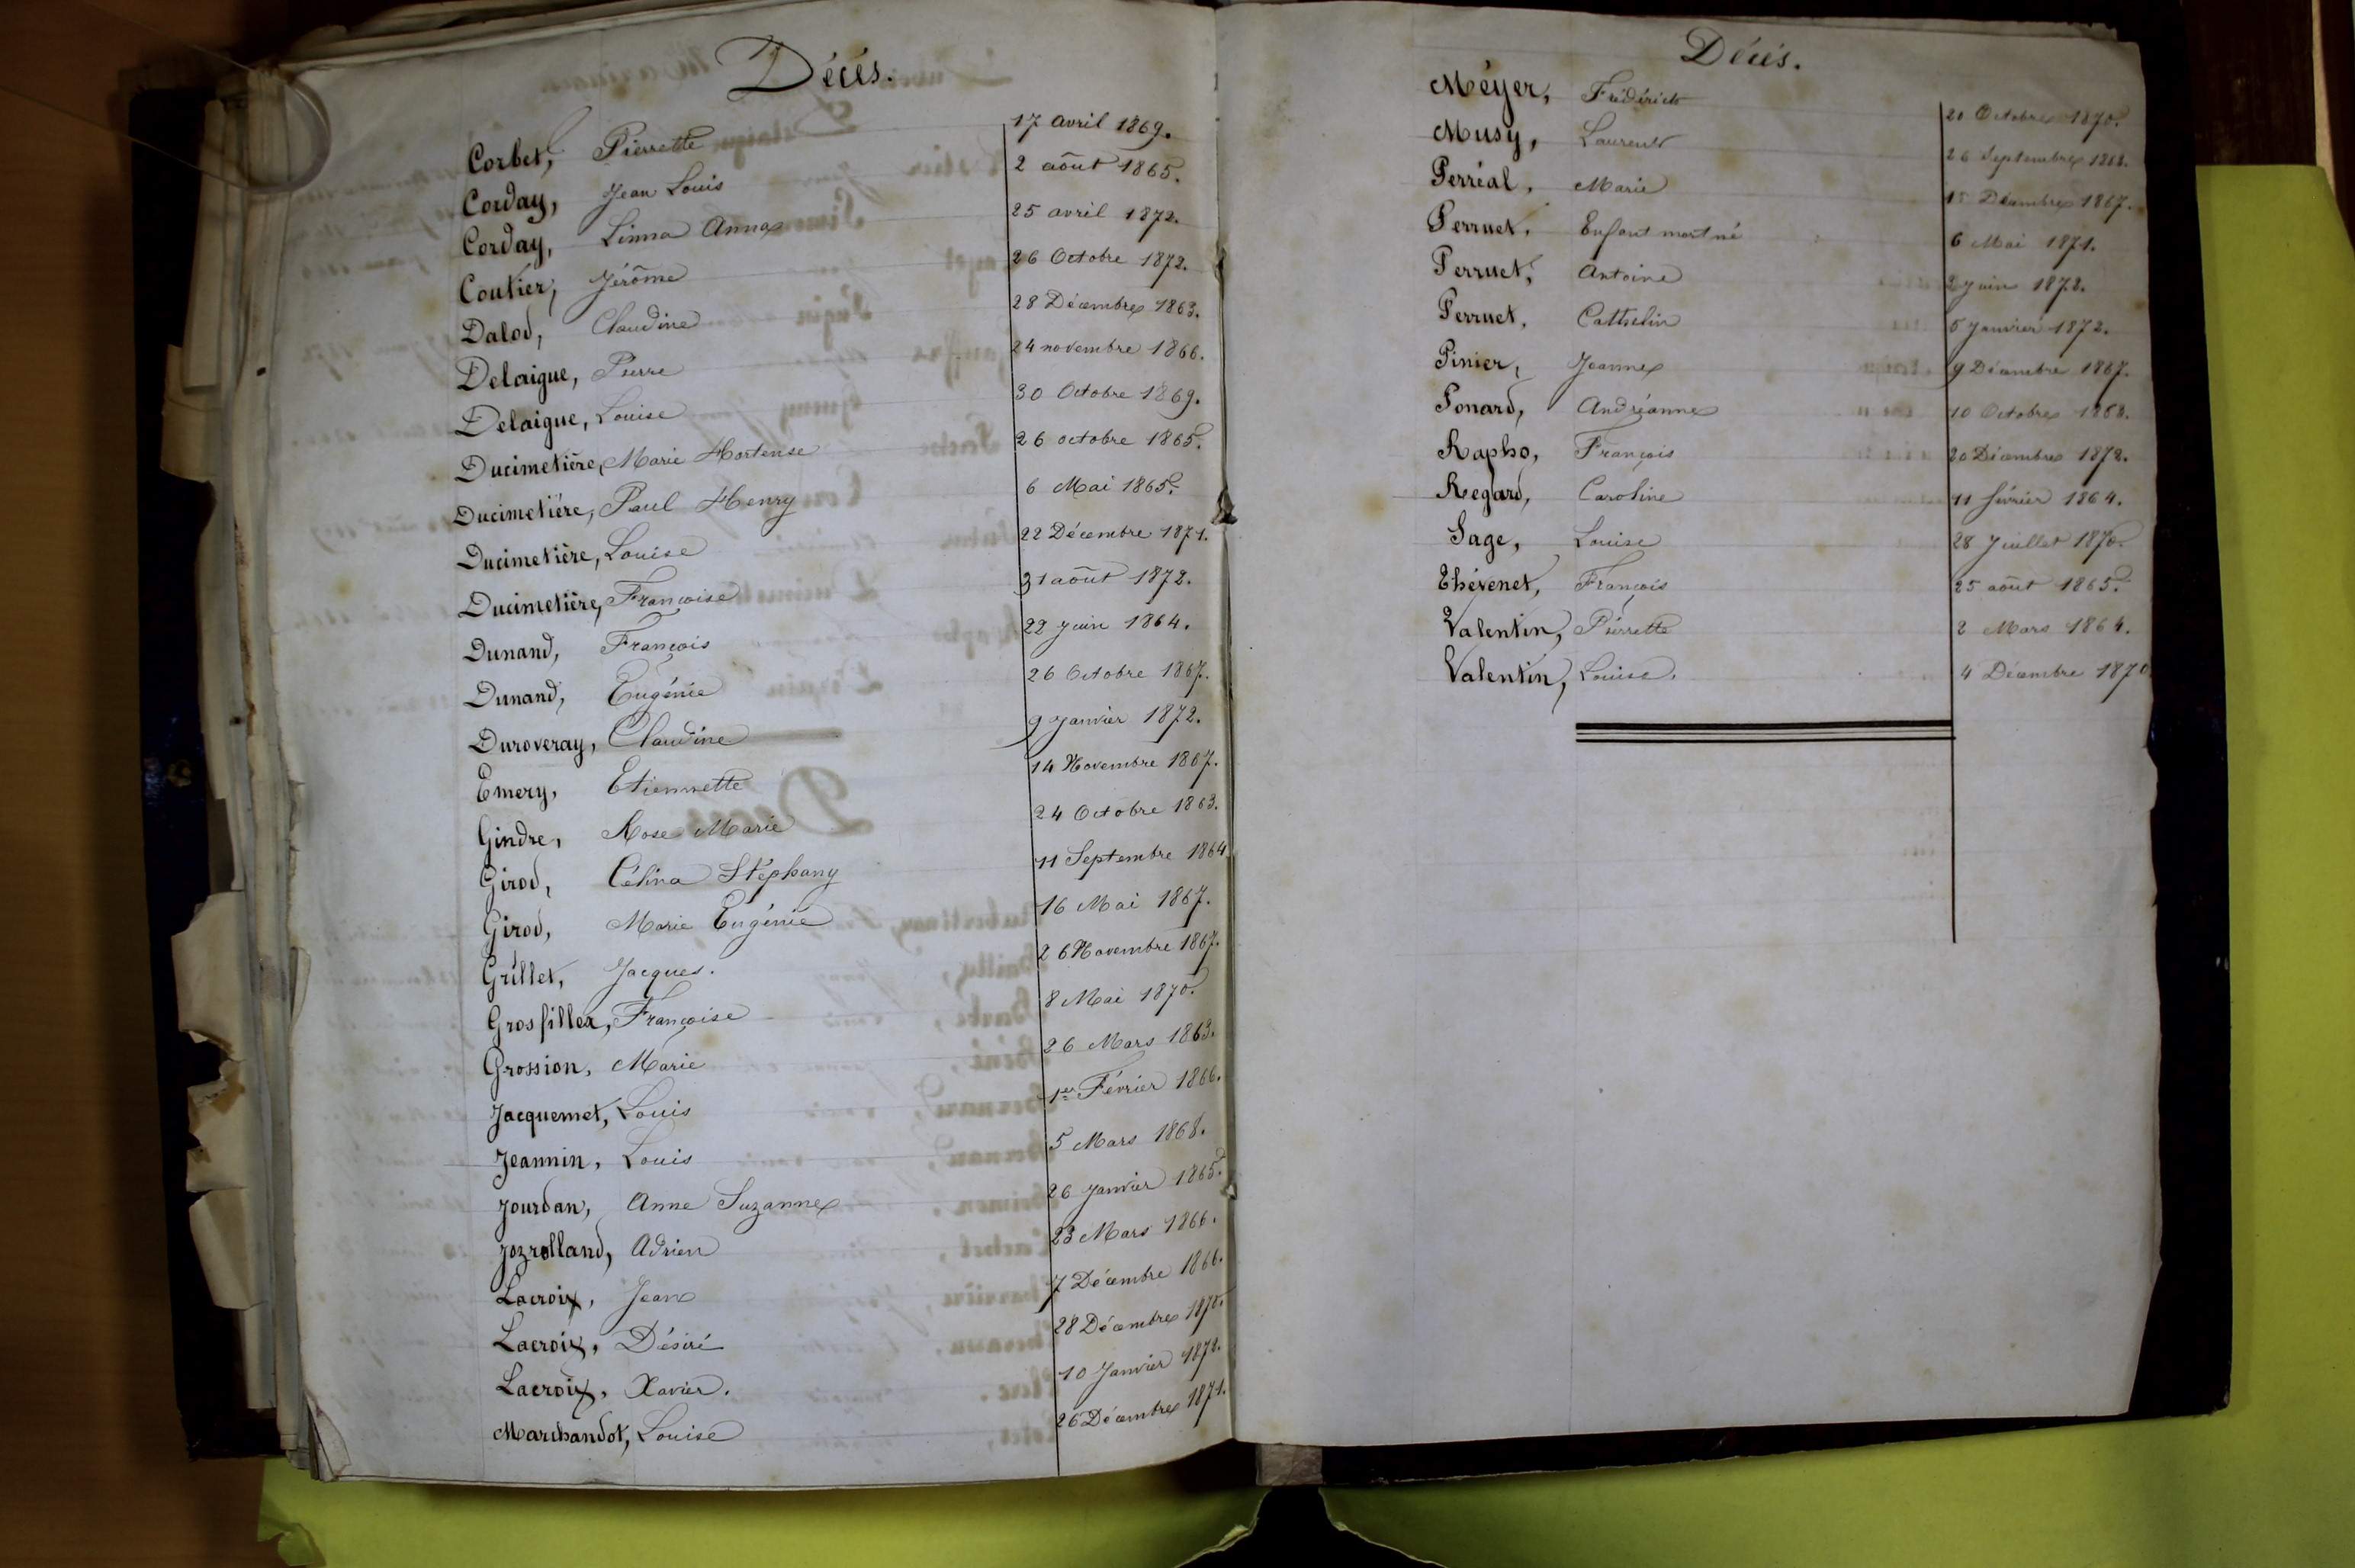 Décès.
Corbet, Pierrette 17 avril 1869.
Corday, Jean Louis 2 août 1865.
Corday, Linna Anna 25 avril 1872.
Coutier, Jérôme 26 Octobre 1872.
Dalod, Claudine 28 Décembre 1863.
Delaigue, Pierre 24 novembre 1866.
Delaigue, Louise 30 Octobre 1869.
Ducimetière, Marie Hortense 26 octobre 1865.
Ducimetière, Paul Henry 6 Mai 1865.
Ducimetière, Louise 22 Décembre 1871.
Ducimetière, Françoise 31 août 1872.
Dunand, François 22 juin 1864.
Dunand, Eugénie 26 Octobre 1867.
Duroveray, Claudine 9 Janvier 1872.
Emery, Etiennette 14 Novembre 1867.
Gindre, Rose Marie 24 Octobre 1863.
Girod, Célina Stéphany 11 Septembre 1864
Girod, Marie Eugénie 16 Mai 1867.
Grillet, Jacques. 26 Novembre 1867.
Grosfillex, Françoise 8 Mai 1870.
Grossion, Marie 26 Mars 1863.
Jacquemet, Louis 1er Février 1866.
Jeannin, Louis 5 Mars 1868.
Jourdan, Anne Suzanne 26 Janvier 1865.
Jozrolland, Adrien 23 Mars 1866.
Lacroix, Jean 7 Décembre 1866.
Lacroix, Désiré 28 Décembre 1870.
Lacroix, Xavier. 10 Janvier 1872.
Marchandot, Louise 26 Décembre 1871.
Décès.
Méyer, Frédérick 20 Octobre 1870.
Musy, Laurent 26 Septembre 1868.
Perréal, Marie Décembre 1867.
Perruet, Enfant mort né 6 Mai 1871.
Perruet, Antoine 2 juin 1872.
Perruet, Cathelin 5 Janvier 1872.
Pinier, Jeanne 9 Décembre 1867.
Ponard, Andréanne 10 Octobre 1863.
Rapho, François 20 Décembre 1872.
Regard, Caroline 11 février 1864.
Sage, Louise 28 Juillet 1870.
Thévenet, François 25 août 1865.
Valentin, Pierrette 2 Mars 1864.
Valentin, Louise. 4 Décembre 1870